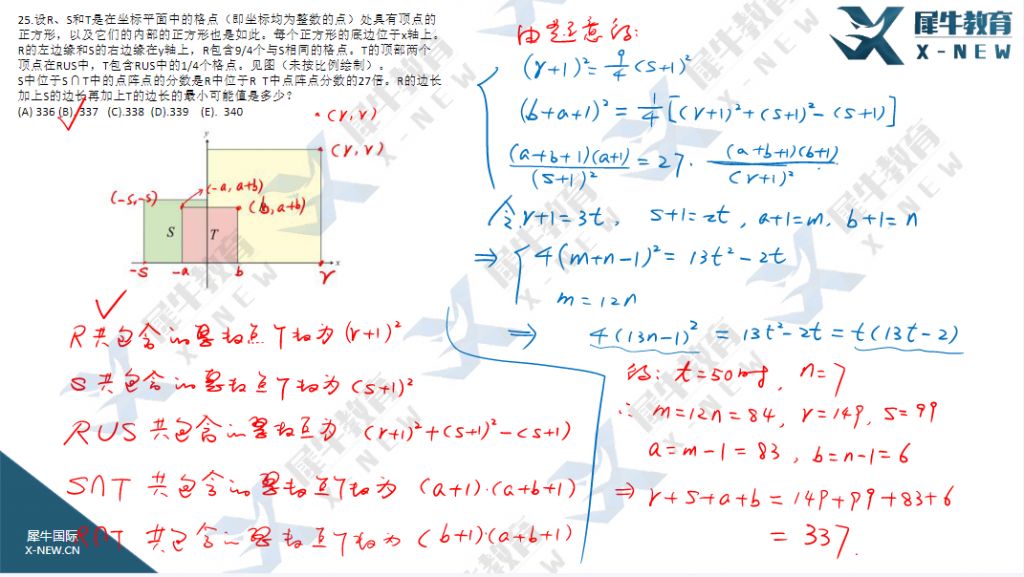 25.设R、S和T是在坐标平面中的格点（即坐标均为整数的点）处具有顶点的
正方形，以及它们的内部的正方形也是如此。每个正方形的底边位于x轴上。
R的左边缘和S的右边缘在y轴上，R包含9/4个与S相同的格点。T的顶部两个
顶点在RUS中，T包含RUS中的1/4个格点。见图（未按比例绘制）。
S中位于S∩T中的点阵点的分数是R中位于R T中点阵点分数的27倍。R的边长
加上S的边长再加上T的边长的最小可能值是多少？
(A) 336 (B). 337 (C).338 (D).339 (E). 340
(r, r)
y
(r, r)
(-a, a+b)
(-s,-s)
(b, a+b)
S
T
-s
-a
b
r
x
R共包含的罗点个数为 (r+1)²
S共包含的点个数为 (s+1)²
RUS 共包含的点为 (r+1)²+(s+1)²-(s+1)
S∩T 共包含的点个数为 (a+1)·(a+b+1)
R∩T 共包含的点个数为 (b+1)·(a+b+1)
由题意得:
(r+1)²=9/4(s+1)²
(b+a+1)²=1/4[(r+1)²+(s+1)²-(s+1)]
(a+b+1)(a+1)/(s+1)²=27·(a+b+1)(b+1)/(r+1)²
令r+1=3t, s+1=2t, a+1=m, b+1=n
⇒ 4(m+n-1)²=13t²-2t
m=12n
⇒ 4(13n-1)²=13t²-2t=t(13t-2)
得: t=50时, n=7
∴ m=12n=84, r=149, s=99
a=m-1=83, b=n-1=6
⇒ r+s+a+b=149+99+83+6
=337.
犀牛教育
X-NEW
犀牛国际
X-NEW.CN